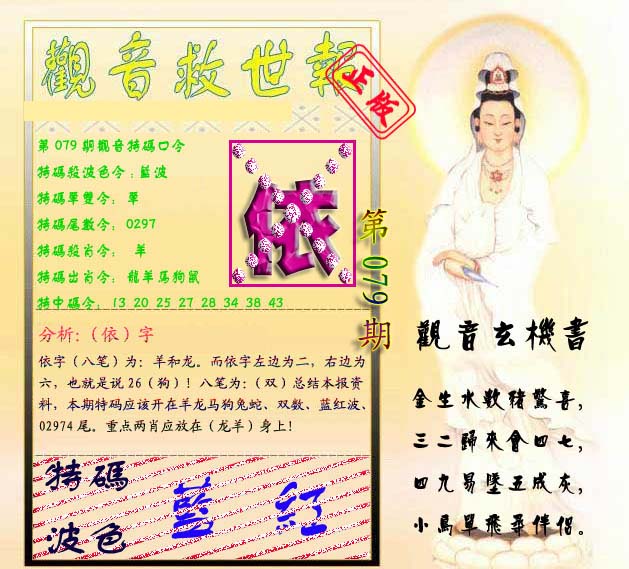 觀音救世報
正版
第079期觀音特碼口令
特碼殺波色令:藍波
特碼單雙令: 單
特碼尾數令: 0297
特碼殺肖令: 羊
特碼出肖令: 龍羊馬狗鼠
特中碼令: 13 20 25 27 28 34 38 43
依
第079期
分析:(依)字
依字(八笔)为:羊和龙。而依字左边为二,右边为
六,也就是说26(狗)!八笔为:(双)总结本报资
料,本期特码应该开在羊龙马狗兔蛇、双数、蓝红波、
02974尾。重点两肖应放在(龙羊)身上!
特碼
波色
藍 紅
觀音玄機書
金生水數豬驚喜,
三二歸來會四七,
四九易墜五成灰,
小鳥單飛尋伴侶。